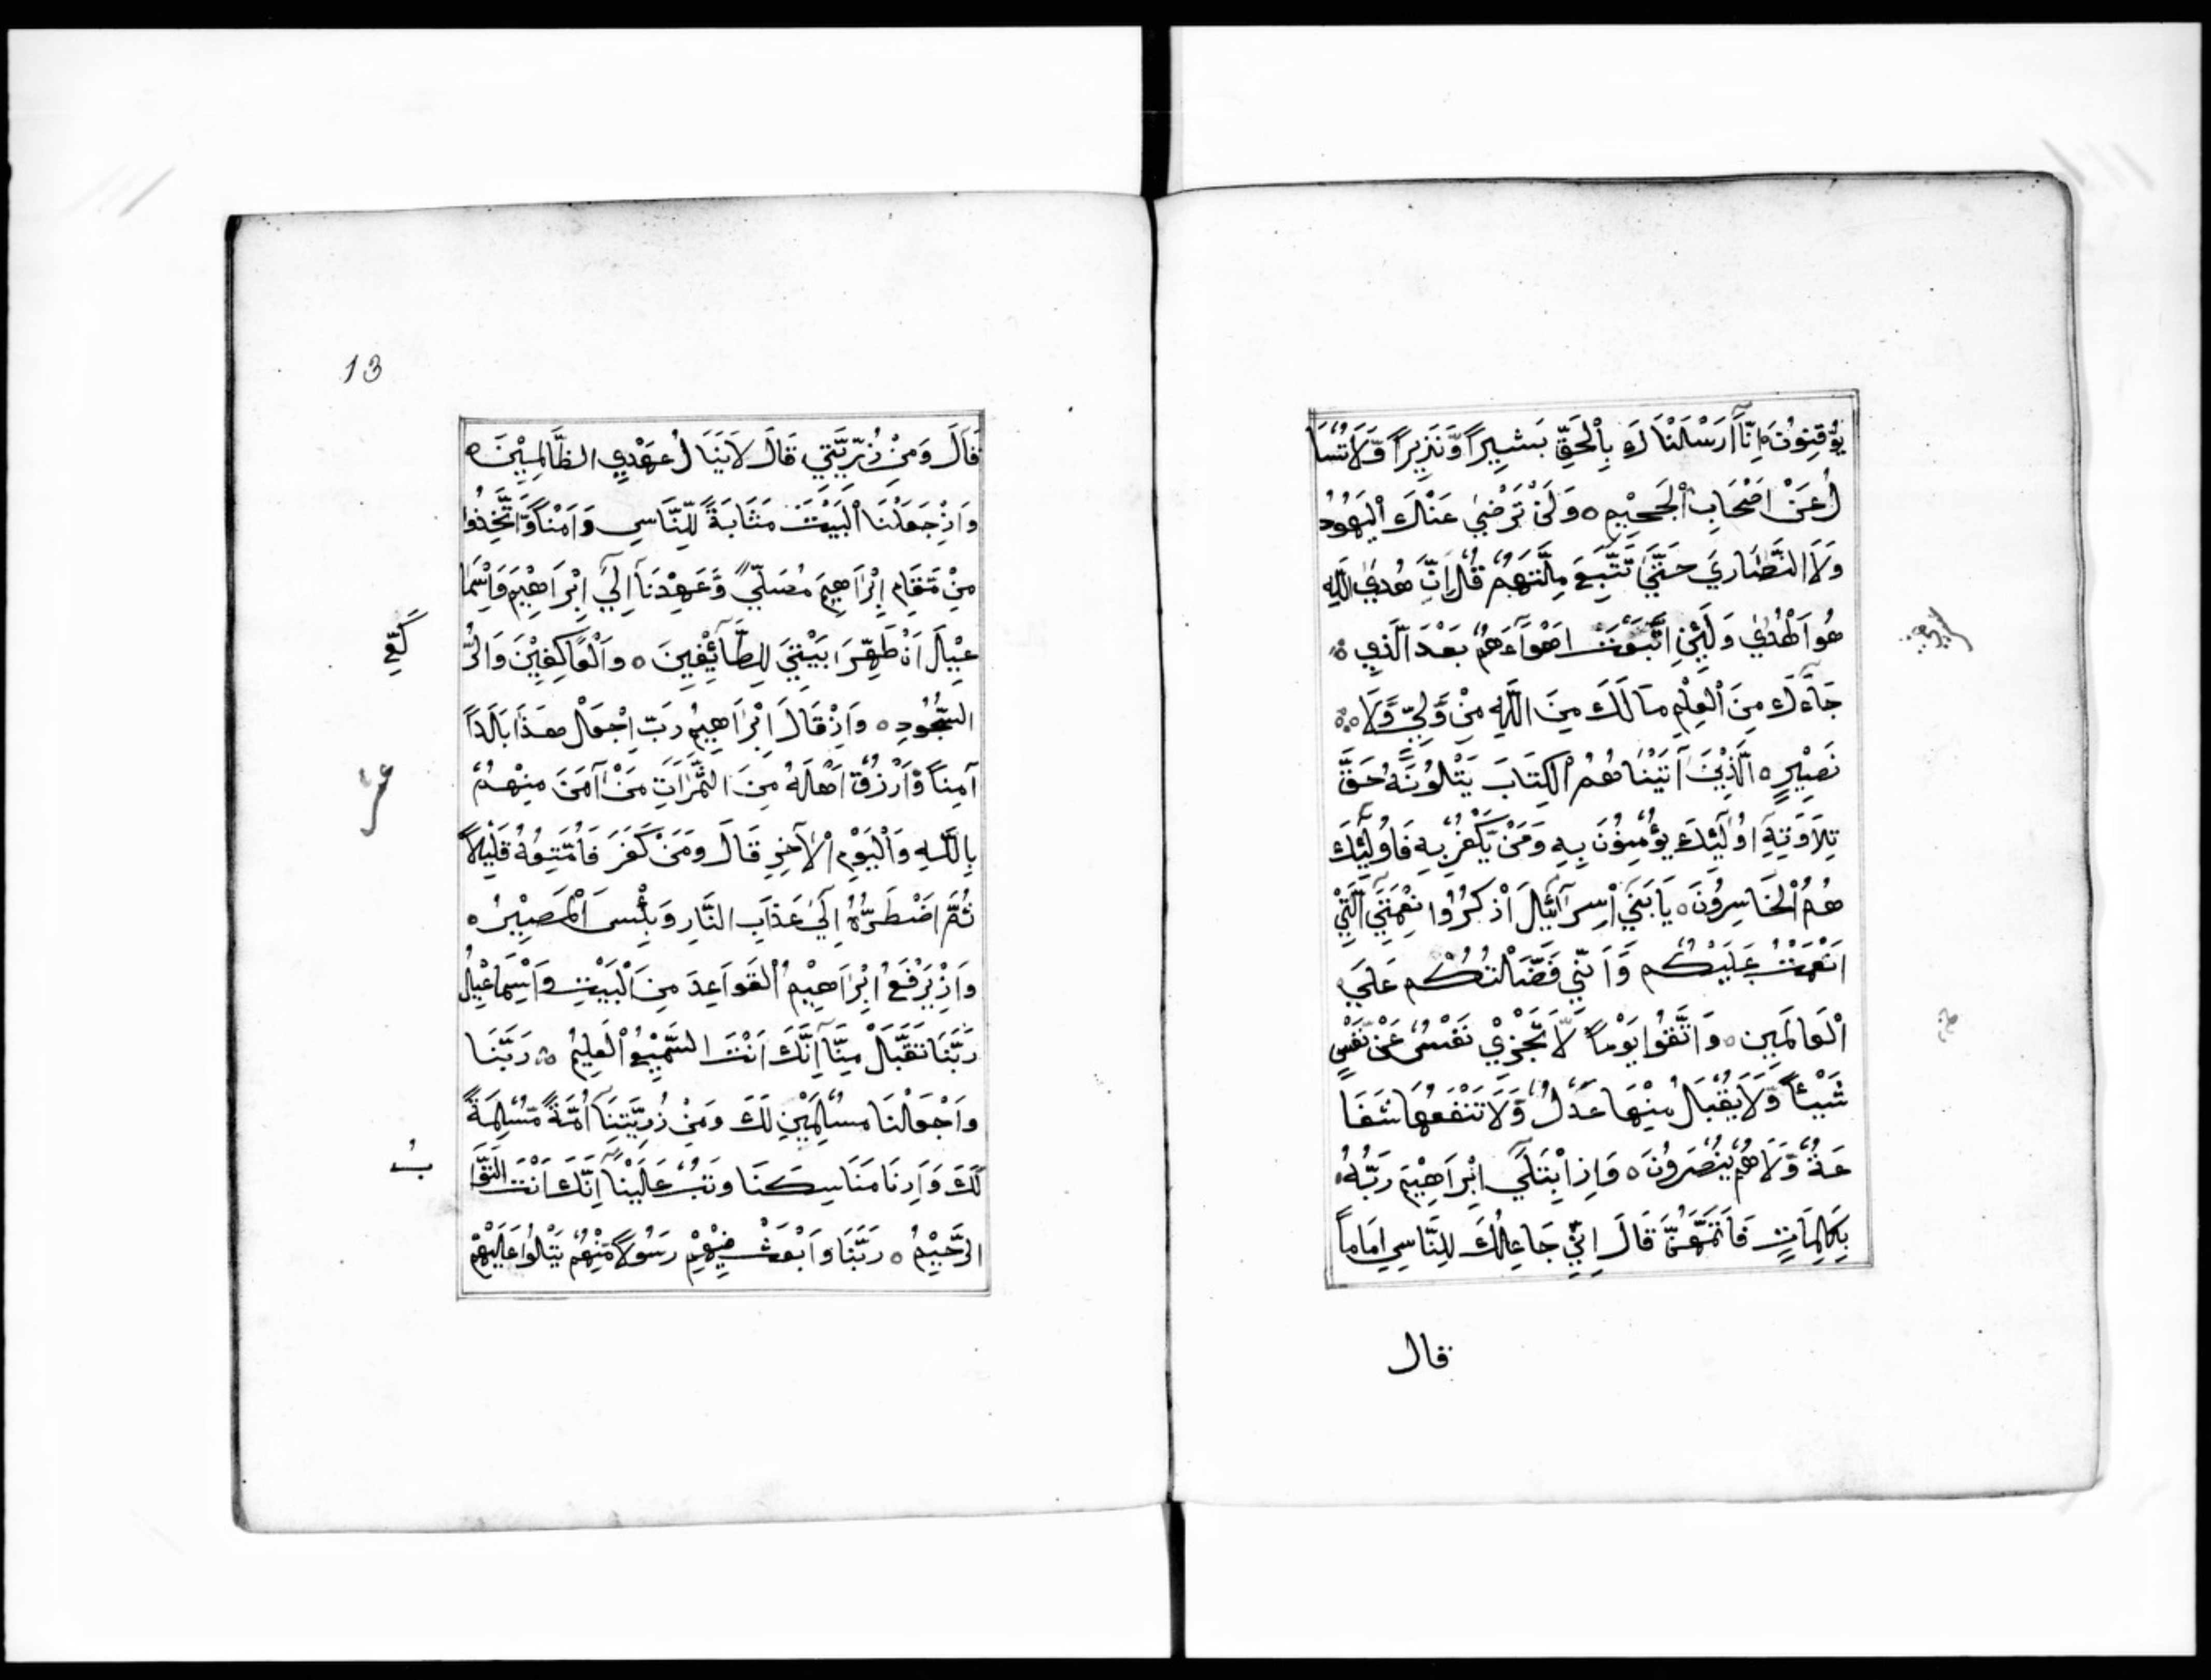 يُؤْقِنُونَ ه اِنَّآ اَرْسَلْنَاكَ بِالْحَقِّ بَشِيراً وَّنَذِيراً وَّلَا تُسْأَ
لُ عَنْ اَصْحَابِ الْجَحِيْمِ ه وَلَنْ تَرْضٰي عَنْكَ الْيَهُودُ
وَلَا النَّصَارَي حَتَّيٰ تَتَّبِعَ مِلَّتَهُمْ قُلْ اِنَّ هُدَي اللّٰهِ
هُوَ الْهُدٰي وَلَئِنِ اتَّبَعْتَ اَهْوَآءَهُمْ بَعْدَ الَّذِي ه
جَآءَكَ مِنَ الْعِلْمِ مَا لَكَ مِنَ اللّٰهِ مِنْ وَّلِيٍّ وَّلَا ه
نَصِيْرٍ ه اَلَّذِيْنَ آتَيْنَاهُمُ الْكِتَابَ يَتْلُوْنَهُ حَقَّ
تِلَاوَتِهِ اُولٰٓئِكَ يُؤْمِنُوْنَ بِهِ وَمَنْ يَّكْفُرْ بِهِ فَاُولٰٓئِكَ
هُمُ الْخَاسِرُوْنَ ه يَا بَنِيٓ اِسْرَآئِيْلَ اذْكُرُوْا نِعْمَتِيَ الَّتِيْ
اَنْعَمْتُ عَلَيْكُمْ وَاَنِّي فَضَّلْتُكُمْ عَلَي
الْعَالَمِيْنَ ه وَاتَّقُوْا يَوْماً لَّا تَجْزِيْ نَفْسٌ عَنْ نَّفْسٍ
شَيْئاً وَّلَا يُقْبَلُ مِنْهَا عَدْلٌ وَّلَا تَنْفَعُهَا شَفَا
عَةٌ وَّلَا هُمْ يُنْصَرُوْنَ ه وَاِذِ ابْتَلَيٓ اِبْرَاهِيْمَ رَبُّهُ
بِكَلِمَاتٍ فَاَتَمَّهُنَّ قَالَ اِنِّيْ جَاعِلُكَ لِلنَّاسِ اِمَاماً
قال
13
قَالَ وَمِنْ ذُرِّيَّتِي قَالَ لَا يَنَالُ عَهْدِي الظَّالِمِيْنَ ه
وَاِذْ جَعَلْنَا الْبَيْتَ مَثَابَةً لِّلنَّاسِ وَاَمْناً وَّاتَّخِذُوا
مِنْ مَّقَامِ اِبْرَاهِيمَ مُصَلّيً وَّعَهِدْنَآ اِلَيٰ اِبْرَاهِيْمَ وَاِسْمَا
عِيْلَ اَنْ طَهِّرَا بَيْتِيَ لِلطَّآئِفِيْنَ ه وَالْعَاكِفِيْنَ وَالرُّ
كَّعِ
السُّجُوْدِ ه وَاِذْ قَالَ اِبْرَاهِيمُ رَبِّ اجْعَلْ هٰذَا بَلَداً
آمِناً وَّارْزُقْ اَهْلَهُ مِنَ الثَّمَرَاتِ مَنْ آمَنَ مِنْهُمْ
بِاللّٰهِ وَالْيَوْمِ الْآخِرِ قَالَ وَمَنْ كَفَرَ فَاُمَتِّعُهُ قَلِيْلاً
ثُمَّ اَضْطَرُّهُ اِلَيٰ عَذَابِ النَّارِ وَبِئْسَ الْمَصِيْرُ ه
وَاِذْ يَرْفَعُ اِبْرَاهِيْمُ الْقَوَاعِدَ مِنَ الْبَيْتِ وَاِسْمَاعِيْلُ
رَبَّنَا تَقَبَّلْ مِنَّآ اِنَّكَ اَنْتَ السَّمِيْعُ الْعَلِيْمُ ه رَبَّنَا
وَاجْعَلْنَا مُسْلِمَيْنِ لَكَ وَمِنْ ذُرِّيَّتِنَآ اُمَّةً مُّسْلِمَةً
لَّكَ وَاَرِنَا مَنَاسِكَنَا وَتُبْ عَلَيْنَآ اِنَّكَ اَنْتَ التَّوَّا
بُ
الرَّحِيْمُ ه رَبَّنَا وَابْعَثْ فِيْهِمْ رَسُوْلاً مِّنْهُمْ يَتْلُوْا عَلَيْهِمْ